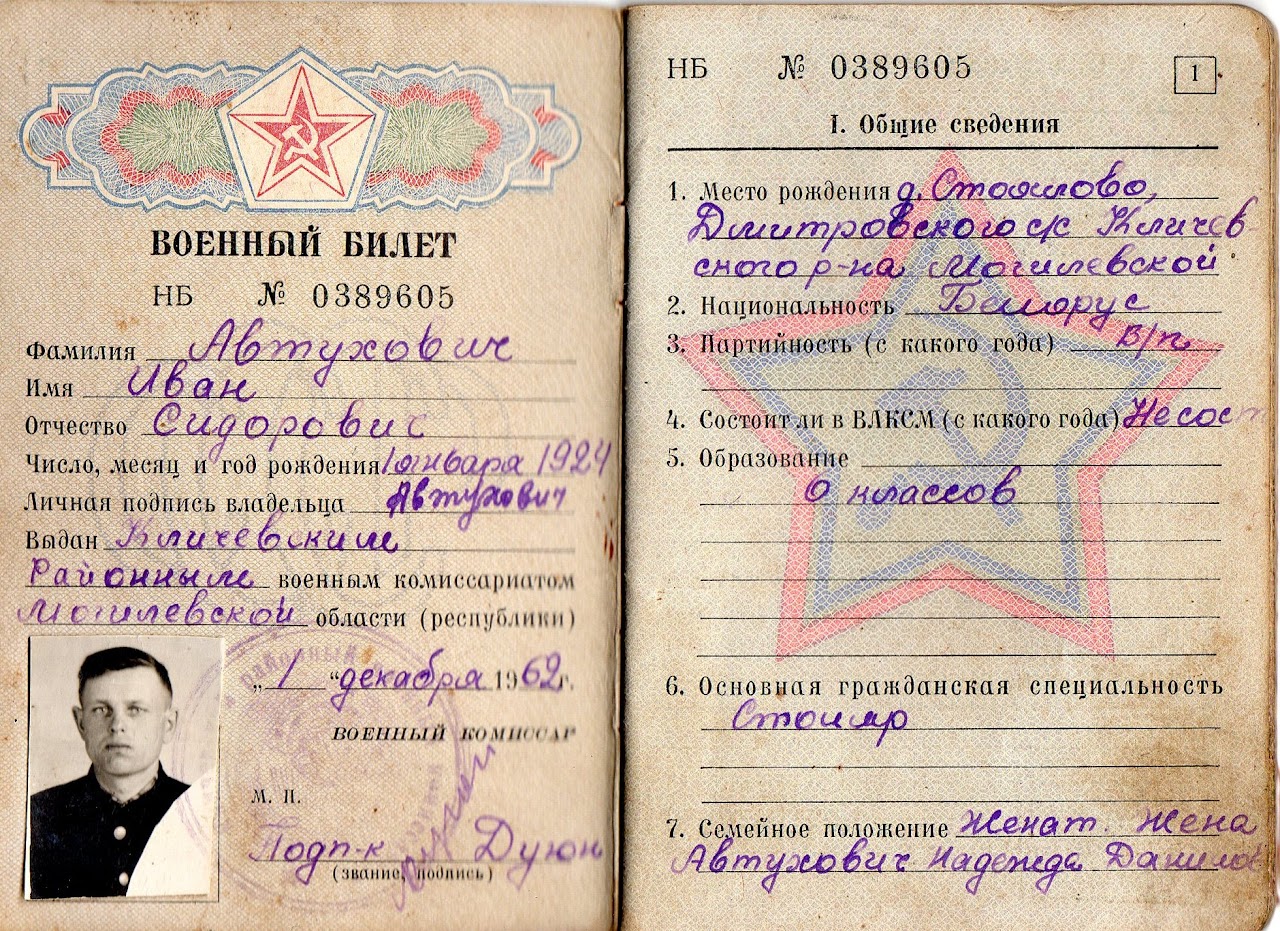 ВОЕННЫЙ БИЛЕТ
НБ № 0389605
Фамилия Автухович
Имя Иван
Отчество Сидорович
Число, месяц и год рождения 1 января 1924
Личная подпись владельца Автухович
Выдан Кличевским
Районным военным комиссариатом
Могилевской области (республики)
„1“ декабря 1962 г.
ВОЕННЫЙ КОМИССАР
М. П.
Подп-к
(звание, подпись)
НБ № 0389605
1
I. Общие сведения
1. Место рождения д. Стоялово,
Дмитровского с/с Кличев-
ского р-на Могилевской
2. Национальность Белорус
3. Партийность (с какого года) Б/п
4. Состоит ли в ВЛКСМ (с какого года) Не сост
5. Образование
0 классов
6. Основная гражданская специальность
Столяр
7. Семейное положение Женат. Жена
Автухович Надежда Данилов